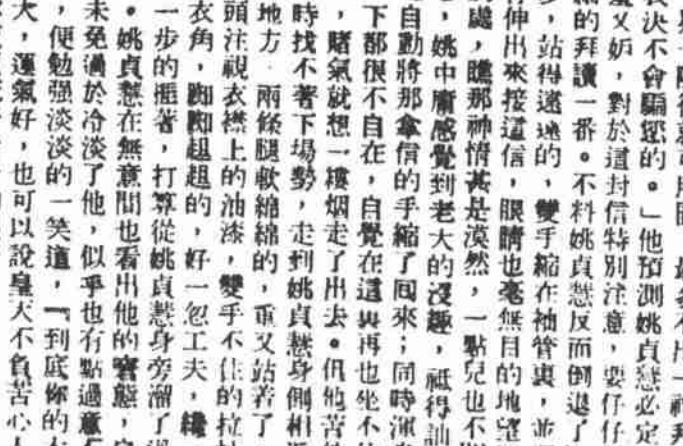 表決不會騙您的。」他預測姚貞慧必定
又妒，對於這封信特別注意，要仔仔
的拜讀一番。不料姚貞慧反而倒退了
，站得遠遠的，雙手縮在袖管裏，並
伸出來接這信，眼睛也毫無目的地望
處，瞧那神情甚是漠然，一點兒也不
，姚中庸感覺到老大的沒趣，祗得訕
自動將那拿信的手縮了回來；同時渾
下都很不自在，自覺在這裏再也坐不
，賭氣就想一樓烟走了出去。但他苦
時找不著下場勢，走到姚貞慧身側相
地方，兩條腿軟綿綿的，重又站著了
頭注視衣襟上的油漆，雙手不住的拉
衣角，踟踟趄趄的，好一忽工夫，纔
一步的捱著，打算從姚貞慧身旁溜了
。姚貞慧在無意間也看出他的窘態，
未免過於冷淡了他，似乎也有點過意
，便勉强淡淡的一笑道，「到底你的
大，運氣好，也可以說皇天不負苦心人